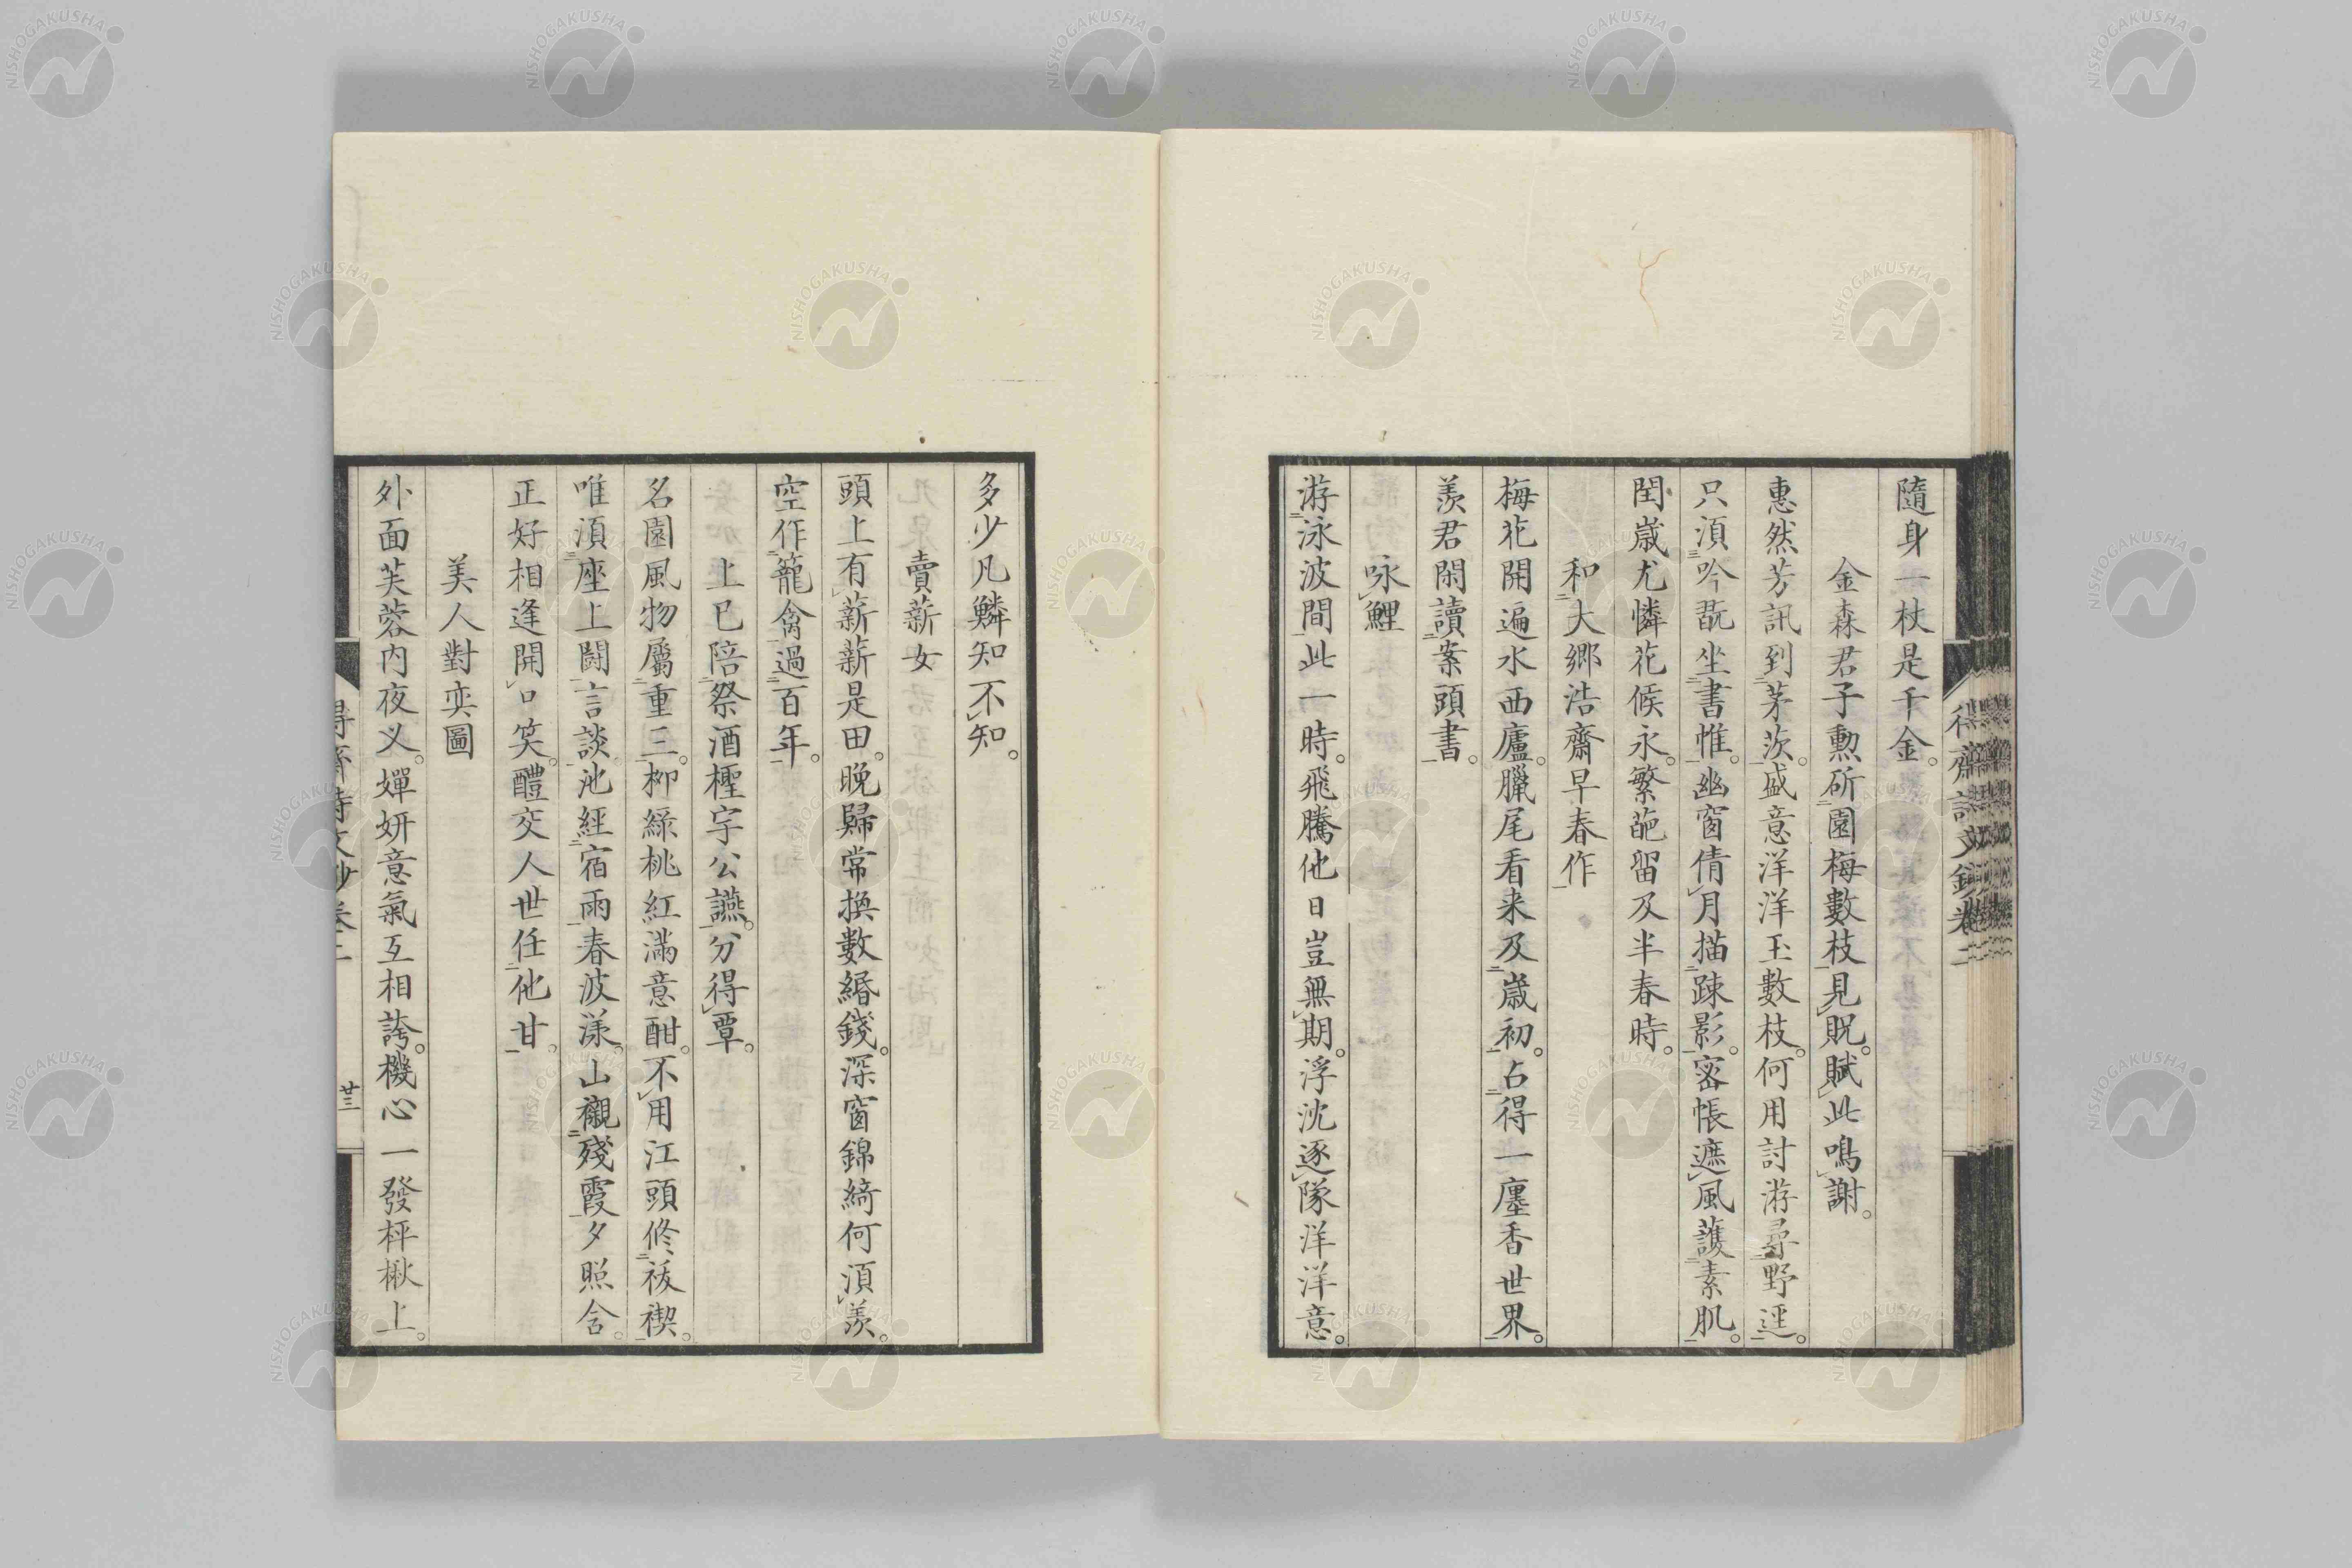 隨身一杖是千金。
金森君子勲斫園梅數枝見貺。賦此鳴謝。
惠然芳訊到茅茨。盛意洋洋玉數枝。何用討游尋野逕。
只須吟翫坐書帷。幽窗倩月描疎影。密帳遮風護素肌。
閏歳尤憐花候永。繁葩留及半春時。
和大郷浩齋早春作
梅花開遍水西廬。臘尾看来及歳初。占得一廛香世界。
羨君閑讀案頭書。
咏鯉
游泳波間此一時。飛騰他日豈無期。浮沈逐隊洋洋意。
多少凡鱗知不知。
賣薪女
頭上有薪薪是田。晩歸常換數緡錢。深窗錦綺何須羨。
空作籠禽過百年。
上巳陪祭酒檉宇公讌。分得覃。
名園風物屬重三。柳綠桃紅滿意酣。不用江頭修祓禊。
唯須座上鬪言談。池經宿雨春波漾。山襯殘霞夕照含。
正好相逢開口笑。醴交人世任他甘。
美人對奕圖
外面芙蓉内夜叉。嬋妍意氣互相誇。機心一發枰楸上。
得齋詩文鈔卷二
廿三
NISHOGAKUSHA